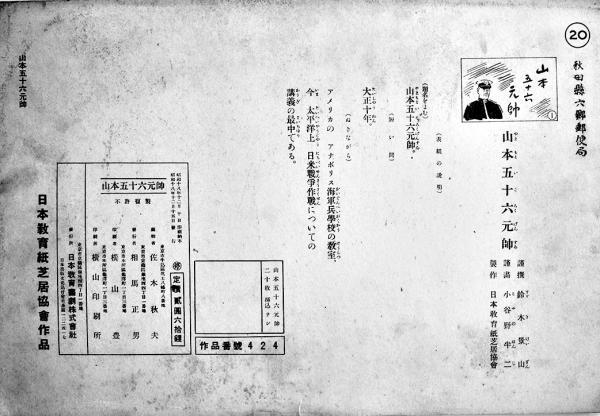 20
秋田縣六郷郵便局
山本
五十六
元帥
1
山本五十六元帥
謹撰 鈴木景山
謹畫 小谷野半二
製作 日本教育紙芝居協會
(表紙の説明)
(題名をよむ)
山本五十六元帥。
(短い間)
大正十年。
(ぬきながら)
アメリカの アナポリス海軍兵學校の教室。
今、太平洋上 日米戰爭作戰についての
講義の最中である。
山本五十六元帥
二十枚
作品番號424
定價 貳圓六拾錢
昭和十八年十二月
山本五十六元帥
不許複製
佐木秋夫
相馬正男
横山豊
横山印刷所
日本教育畫劇株式會社
日本教育紙芝居協會作品
山本五十六元帥